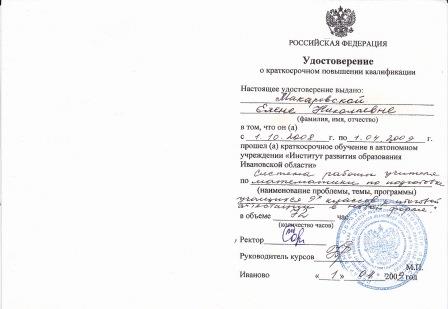 РОССИЙСКАЯ ФЕДЕРАЦИЯ
Удостоверение
о краткосрочном повышении квалификации
Настоящее удостоверение выдано:
Макаровской
Елене Николаевне
(фамилия, имя, отчество)
в том, что он (а)
с 1.10.2008 г. по 1.04.2009 г.
прошел (а) краткосрочное обучение в автономном
учреждении «Институт развития образования
Ивановской области»
Система работы учителя
по математики по подготовке
(наименование проблемы, темы, программы)
учащихся 9х классов к итоговой
аттестации в новой форме."
в объеме 72 час.
(количество часов)
Ректор
Руководитель курсов
М.П.
Иваново «1» 04 2009 год